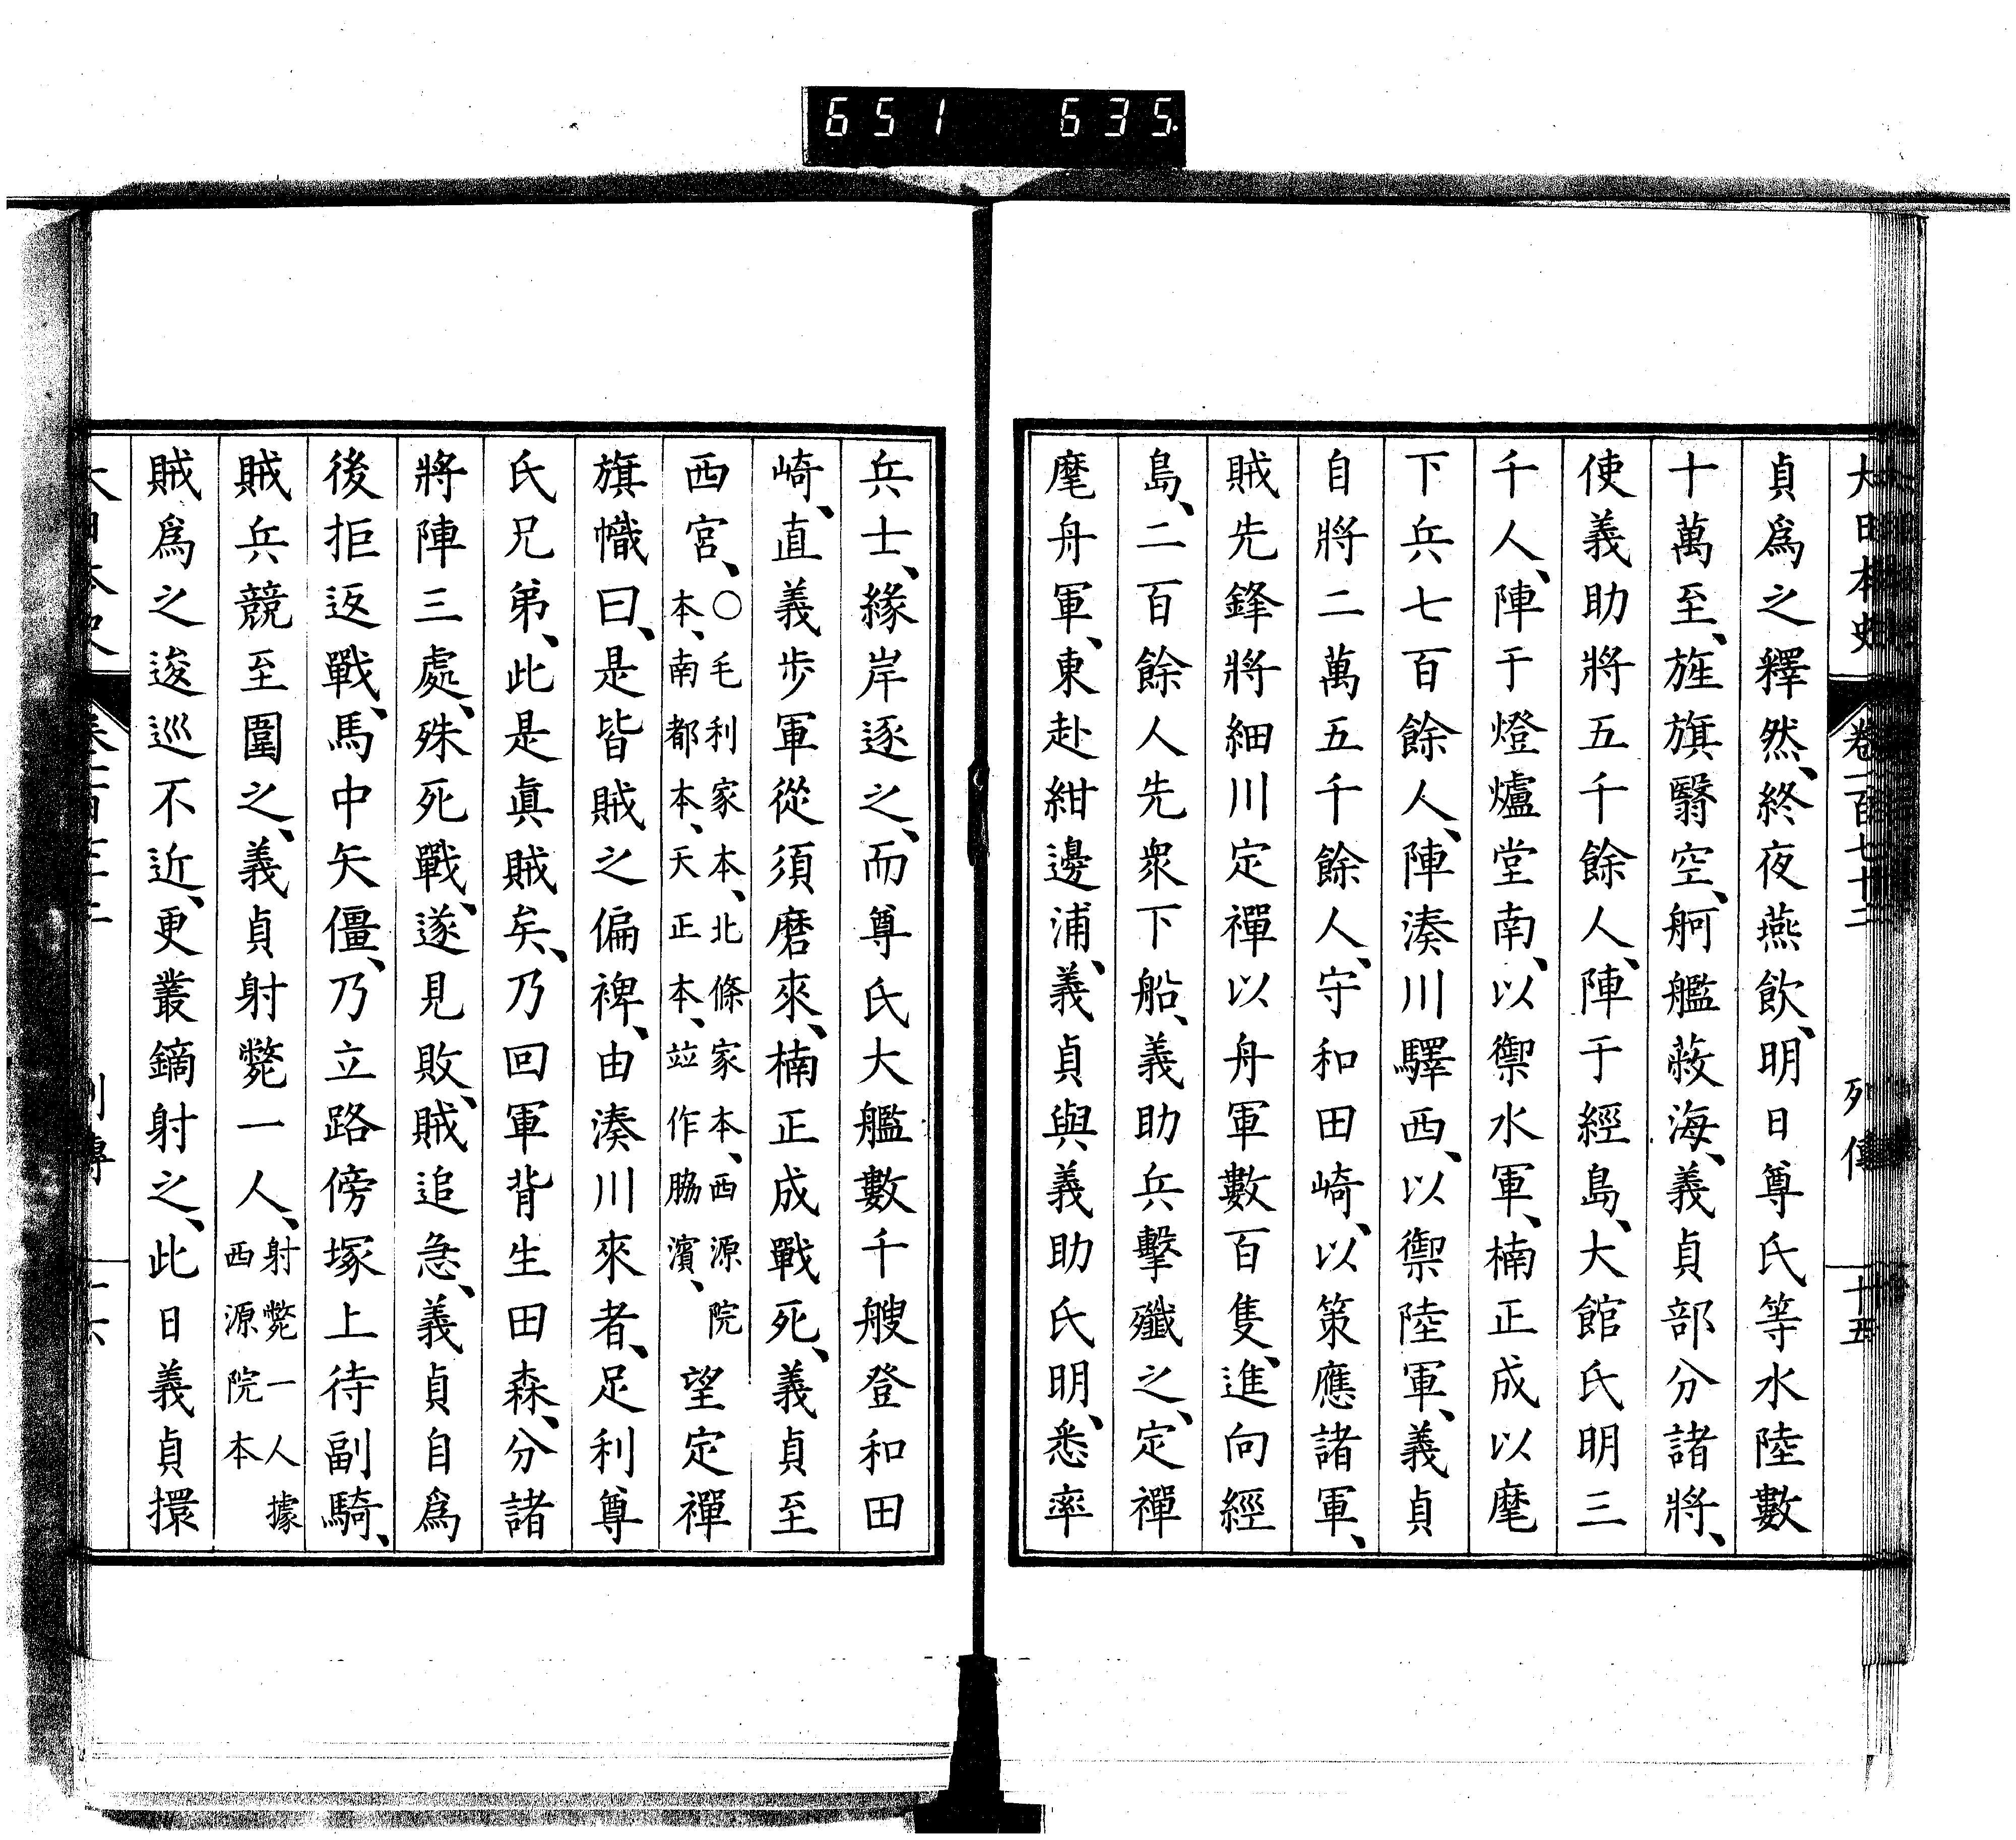 651 635
大日本史 卷一百七十二 列傳 十五
貞爲之釋然、終夜燕飲、明日尊氏等水陸數
十萬至、旌旗翳空、舸艦蔽海、義貞部分諸將、
使義助將五千餘人、陣于經島、大館氏明三
千人、陣于燈爐堂南、以禦水軍、楠正成以麾
下兵七百餘人、陣湊川驛西、以禦陸軍、義貞
自將二萬五千餘人、守和田崎、以策應諸軍、
賊先鋒將細川定禪以舟軍數百隻、進向經
島、二百餘人先衆下船、義助兵擊殲之、定禪
麾舟軍、東赴紺邊浦、義貞與義助氏明、悉率
兵士、緣岸逐之、而尊氏大艦數千艘登和田
崎、直義步軍從須磨來、楠正成戰死、義貞至
西宮、〇毛利家本、北條家本、西源院本、南都本、天正本、竝作脇濱、望定禪
旗幟曰、是皆賊之偏裨、由湊川來者、足利尊
氏兄弟、此是眞賊矣、乃回軍背生田森、分諸
將陣三處、殊死戰、遂見敗、賊追急、義貞自爲
後拒返戰、馬中矢僵、乃立路傍塚上待副騎、
賊兵競至圍之、義貞射斃一人、射斃一人據西源院本
賊爲之逡巡不近、更叢鏑射之、此日義貞擐